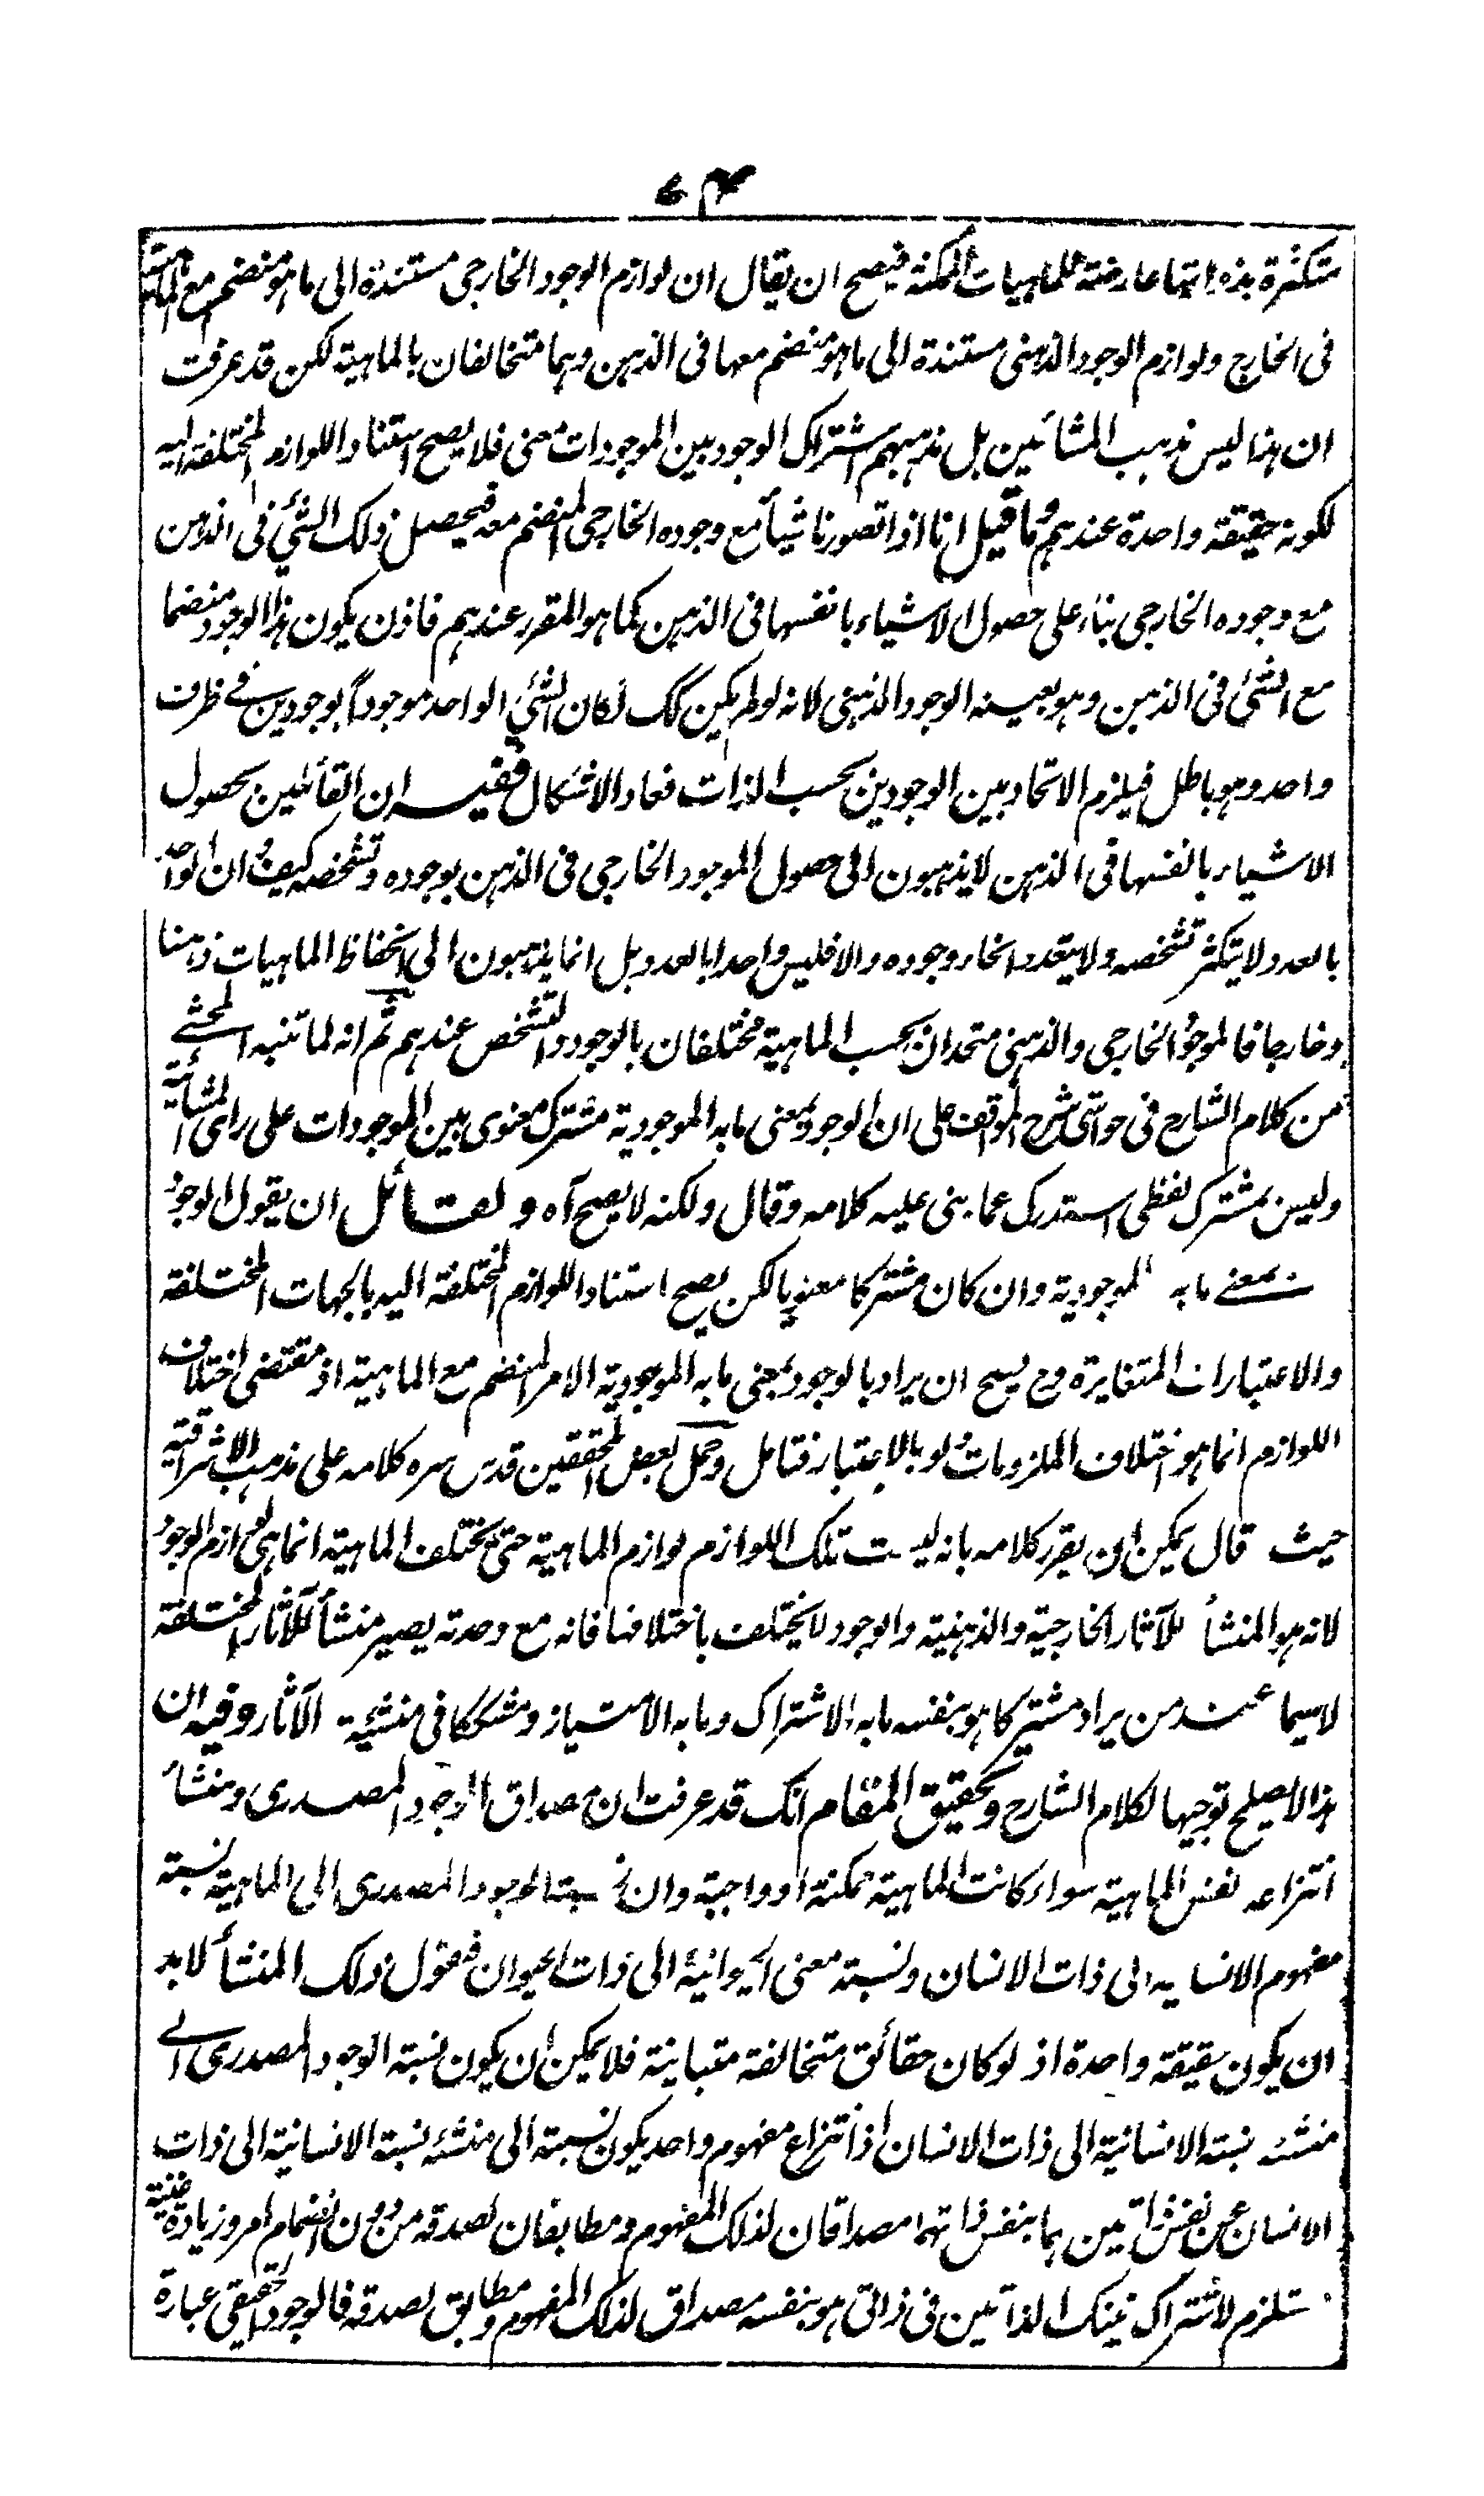 متكثرة بذواتها عارضة للماهيات الممكنة فيصح ان يقال ان لوازم الوجود الخارجى مستندة الى ما هو منضم مع الماهية
فى الخارج ولوازم الوجود الذهنى مستندة الى ما هو منضم معها فى الذهن وهما متخالفان بالماهية لكن قد عرفت
ان هذا ليس مذهب المشائين بل مذهبهم اشتراك الوجود بين الموجودات معنى فلا يصح استناد اللوازم المختلفة اليه
لكونه حقيقة واحدة عندهم وما قيل انا اذا تصورنا شيأ مع وجوده الخارجى المنضم معه فيحصل ذلك الشئ فى الذهن
مع وجوده الخارجى بناء على حصول الاشياء بانفسها فى الذهن كما هو المقرر عندهم فاذن يكون هذا الوجود منضما
مع الشئ فى الذهن وهو بعينه الوجود الذهنى لانه لو لم يكن كك لكان الشئ الواحد موجوداً بوجودين فى ظرف
واحد وهو باطل فيلزم الاتحاد بين الوجودين بحسب الذات فعاد الاشكال ففيه ان القائلين بحصول
الاشياء بانفسها فى الذهن لا يذهبون الى حصول الموجود الخارجى فى الذهن بوجوده وتشخصه كيف وان الواحد
بالعدد لا يتكثر تشخصه ولا يتعدد انحاء وجوده والا فليس واحدا بالعدد بل انما يذهبون الى انحفاظ الماهيات ذهنا
وخارجا فالموجود الخارجى والذهنى متحدان بحسب الماهية مختلفان بالوجود والتشخص عندهم ثم انه لما تنبه المحشى
من كلام الشارح فى حواشى شرح المواقف على ان الوجود بمعنى ما به الموجودية مشترك معنوى بين الموجودات على راى المشائية
وليس بمشترك لفظى استدرك عما بنى عليه كلامه وقال ولكنه لا يصح آه ولقائل ان يقول الوجود
بمعنى ما به الموجودية وان كان مشتركا معنويا لكن يصح استناد اللوازم المختلفة اليه بالجهات المختلفة
والاعتبارات المتغايرة وح يصح ان يراد بالوجود بمعنى ما به الموجودية الامر المنضم مع الماهية اذ مقتضى اختلاف
اللوازم انما هو اختلاف الملزومات ولو بالاعتبار فتامل وحمل بعض المحققين قدس سره كلامه على مذهب الاشراقية
حيث قال يمكن ان يقرر كلامه بانه ليست تلك اللوازم لوازم الماهية حتى يختلف الماهية انما هى لوازم الوجود
لانه هو المنشأ للآثار الخارجية والذهنية والوجود لا يختلف باختلافها فانه مع وحدته يصير منشأ للآثار المختلفة
لاسيما عند من يراد مشتركا هو بنفسه ما به الاشتراك وما به الامتياز ومشككا فى منشئية الآثار وفيه ان
هذا لا يصلح توجيها لكلام الشارح وتحقيق المقام انك قد عرفت ان مصداق الوجود المصدرى ومنشأ
انتزاعه نفس الماهية سواء كانت الماهية ممكنة او واجبة وان نسبة الوجود المصدرى الى الماهية نسبة
مفهوم الانسانية الى ذات الانسان ونسبة معنى الحيوانية الى ذات الحيوان فنقول ذلك المنشأ لا بد
ان يكون حقيقة واحدة اذ لو كان حقائق متخالفة متباينة فلا يمكن ان يكون نسبة الوجود المصدرى الى
منشئه نسبة الانسانية الى ذات الانسان اذ انتزاع مفهوم واحد يكون نسبته الى منشئه نسبة الانسانية الى ذات
الانسان عن نفس ذاتين هما بنفس ذاتهما مصداقان لذلك المفهوم ومطابقان لصدقه من دون انضمام امر وزيادة حيثية
مستلزم لاشتراك تينك الذاتين فى ذاتى هو بنفسه مصداق لذلك المفهوم ومطابق لصدقه فالوجود الحقيقى عبارة